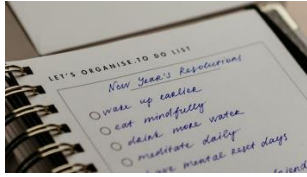 LET'S ORGANISE. TO DO LIST
New Year's Resolutions
wake up earlier
eat mindfully
drink more water
meditate daily
have mental reset days